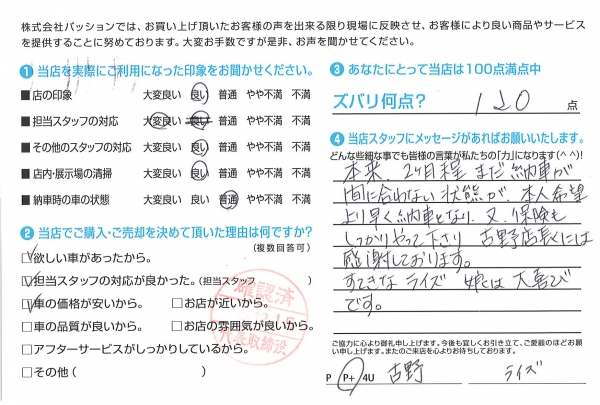 株式会社パッションでは、お買い上げ頂いたお客様の声を出来る限り現場に反映させ、お客様により良い商品やサービス
を提供することに努めております。大変お手数ですが是非、お声を聞かせてください。
1 当店を実際にご利用になった印象をお聞かせください。
■店の印象 大変良い 良い 普通 やや不満 不満
■担当スタッフの対応 大変良い 良い 普通 やや不満 不満
■その他のスタッフの対応 大変良い 良い 普通 やや不満 不満
■店内・展示場の清掃 大変良い 良い 普通 やや不満 不満
■納車時の車の状態 大変良い 良い 普通 やや不満 不満
2 当店でご購入・ご売却を決めて頂いた理由は何ですか?
(複数回答可)
□欲しい車があったから。
□担当スタッフの対応が良かった。(担当スタッフ )
□車の価格が安いから。 □お店が近いから。
□車の品質が良いから。 □お店の雰囲気が良いから。
□アフターサービスがしっかりしているから。
□その他( )
確認済
代表取締役
3 あなたにとって当店は100点満点中
ズバリ何点? 120 点
4 当店スタッフにメッセージがあればお願いいたします。
どんな些細な事でも皆様の言葉が私たちの「力」になります(^ ^)!
本来、2ヶ月程 まだ納車が
間に合わない状態が、本人希望
より早く納車となり、又、保険も
しっかりやって下さり 古野店長には
感謝しております。
すてきなライズ 娘は大喜び
です。
ご協力に心より御礼申し上げます。今後も宜しくお引き立て、ご愛顧のほどお願
い申し上げます。またのご来店を心よりお待ちしております。
P P+ 4U 古野 ライズ